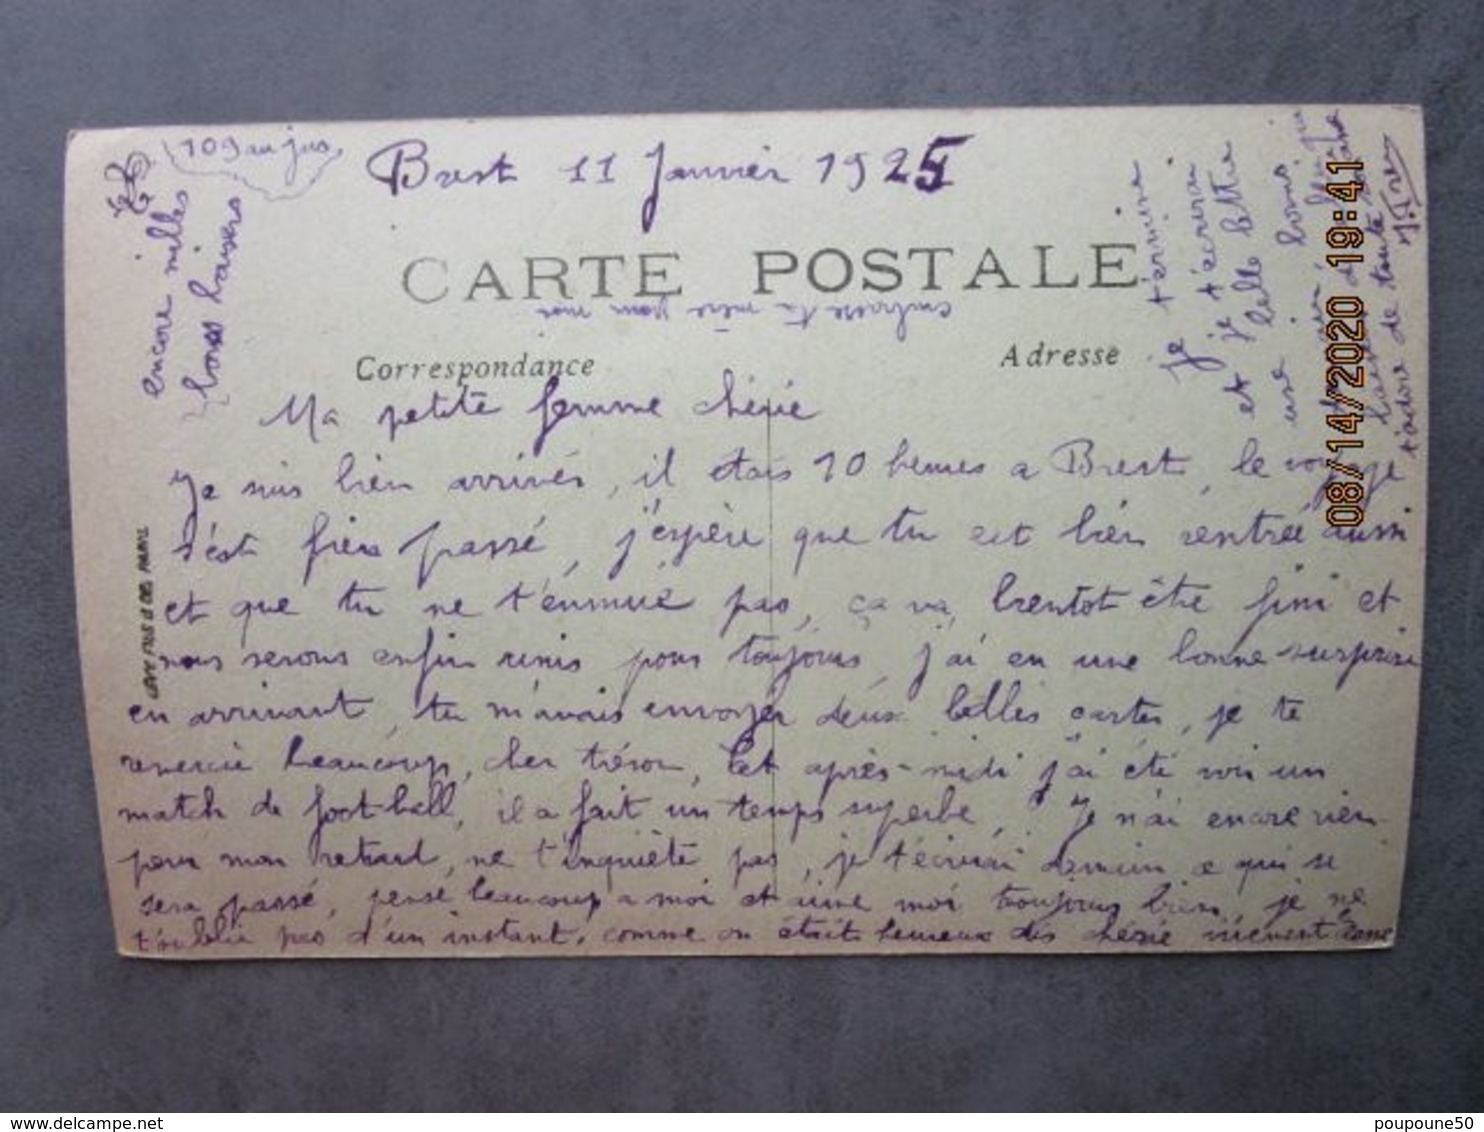 109 au jus
Brest 11 Janvier 1925
CARTE POSTALE
embrasse ta mère pour moi
Correspondance
Adresse
Ma petite femme chérie
Je suis bien arrivés, il étais 10 heures a Brest, le voyage
s'est bien passé, j'espère que tu est bien rentrée aussi
et que tu ne t'ennuie pas, ça va bientot être fini et
nous serons enfin réunis pour toujours, j'ai eu une bonne surprise
en arrivant, tu m'avais envoyer deux belles cartes, je te
remercie beaucoup, cher trésor, cet après-midi j'ai été voir un
match de foot-ball, il a fait un temps superbe, Je n'ai encore rien
pour mon retard, ne t'inquiète pas, je t'écrirai demain ce qui se
sera passé, pense beaucoup a moi et aime moi toujours bien, je ne
t'oublie pas d'un instant, comme on était heureux dis chérie vivement
encore milles
bons baisers
Je termine
je t'écrirai
et une belle lettre
t'adore de toute
LEVY FILS & CIE PARIS
08/14/2020 19:41
poupoune50